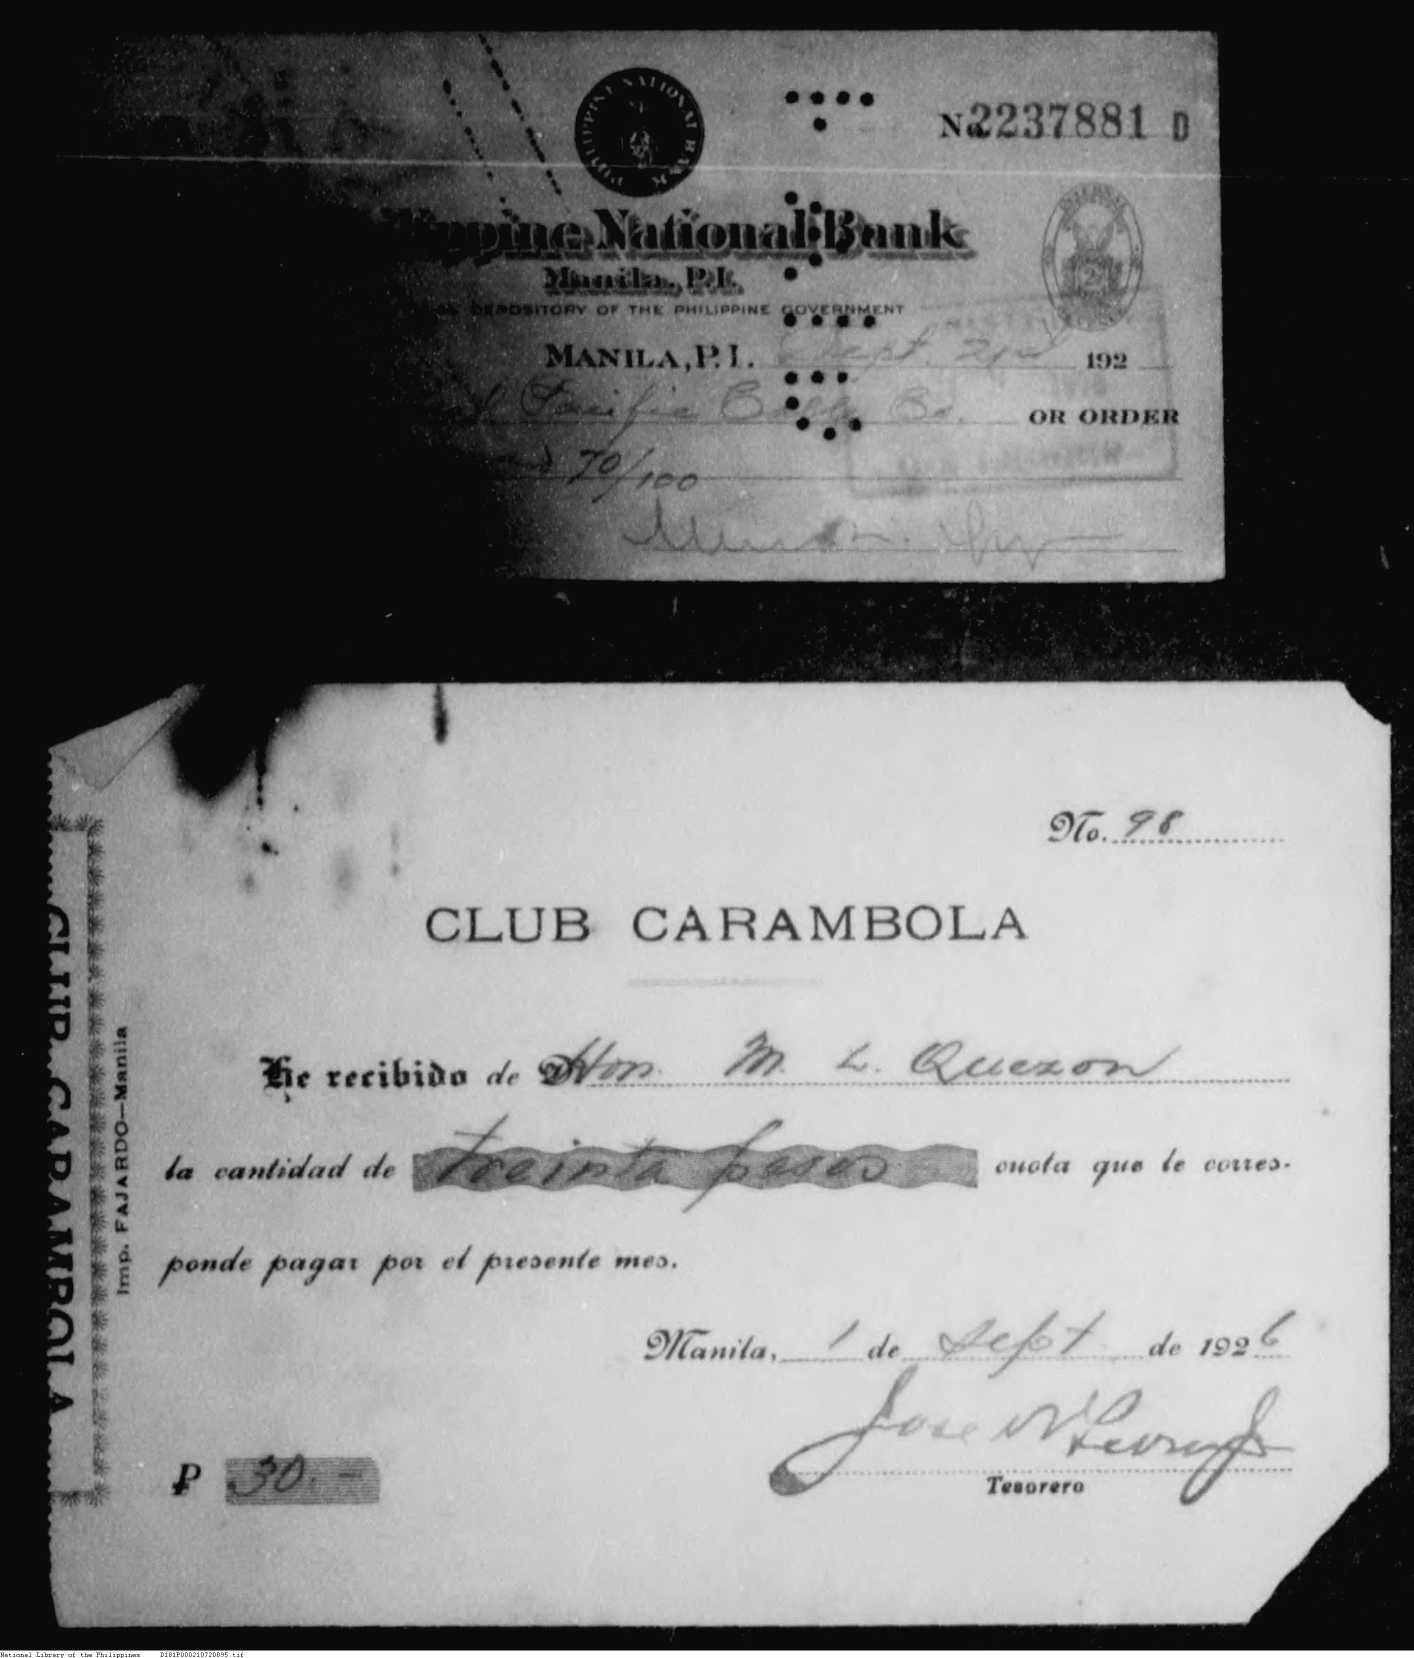 PHILIPPINE NATIONAL BANK
No 2237881 D
ippine National Bank
Manila, P.I.
DEPOSITORY OF THE PHILIPPINE GOVERNMENT
INTERNAL
2
MANILA, P.I. Sept. 192
Pacific Co. OR ORDER
and 70/100
No. 98
CLUB CARAMBOLA
CLUB CARAMBOLA
Imp. FAJARDO—Manila
He recibido de D Hon. M. L. Quezon
la cantidad de treinta pesos cuota que le corres-
ponde pagar por el presente mes.
Manila, 1 de Sept de 1926
Jose
₱ 30.-
Tesorero
National Library of the Philippines D181P000210720895.tif